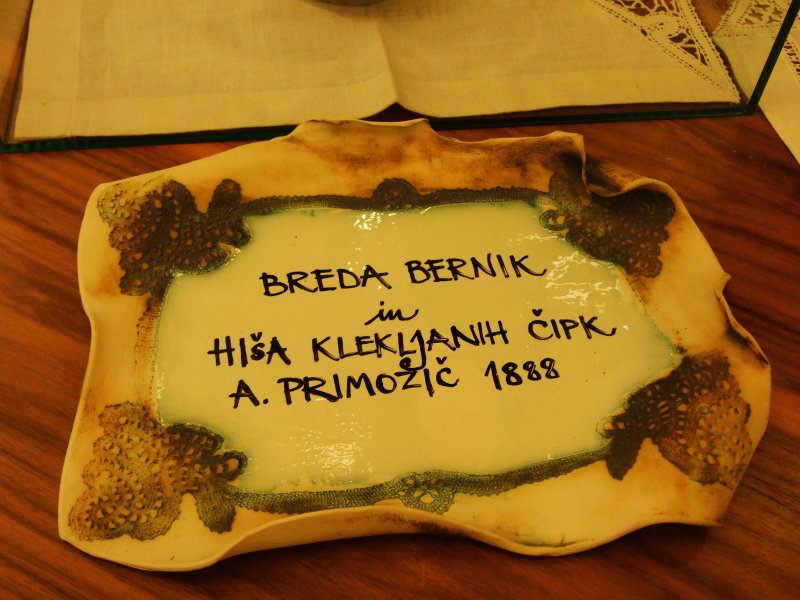 BREDA BERNIK
in
HIšA KLEKLJANIH ČIPK
A. PRIMOŽIČ 1888